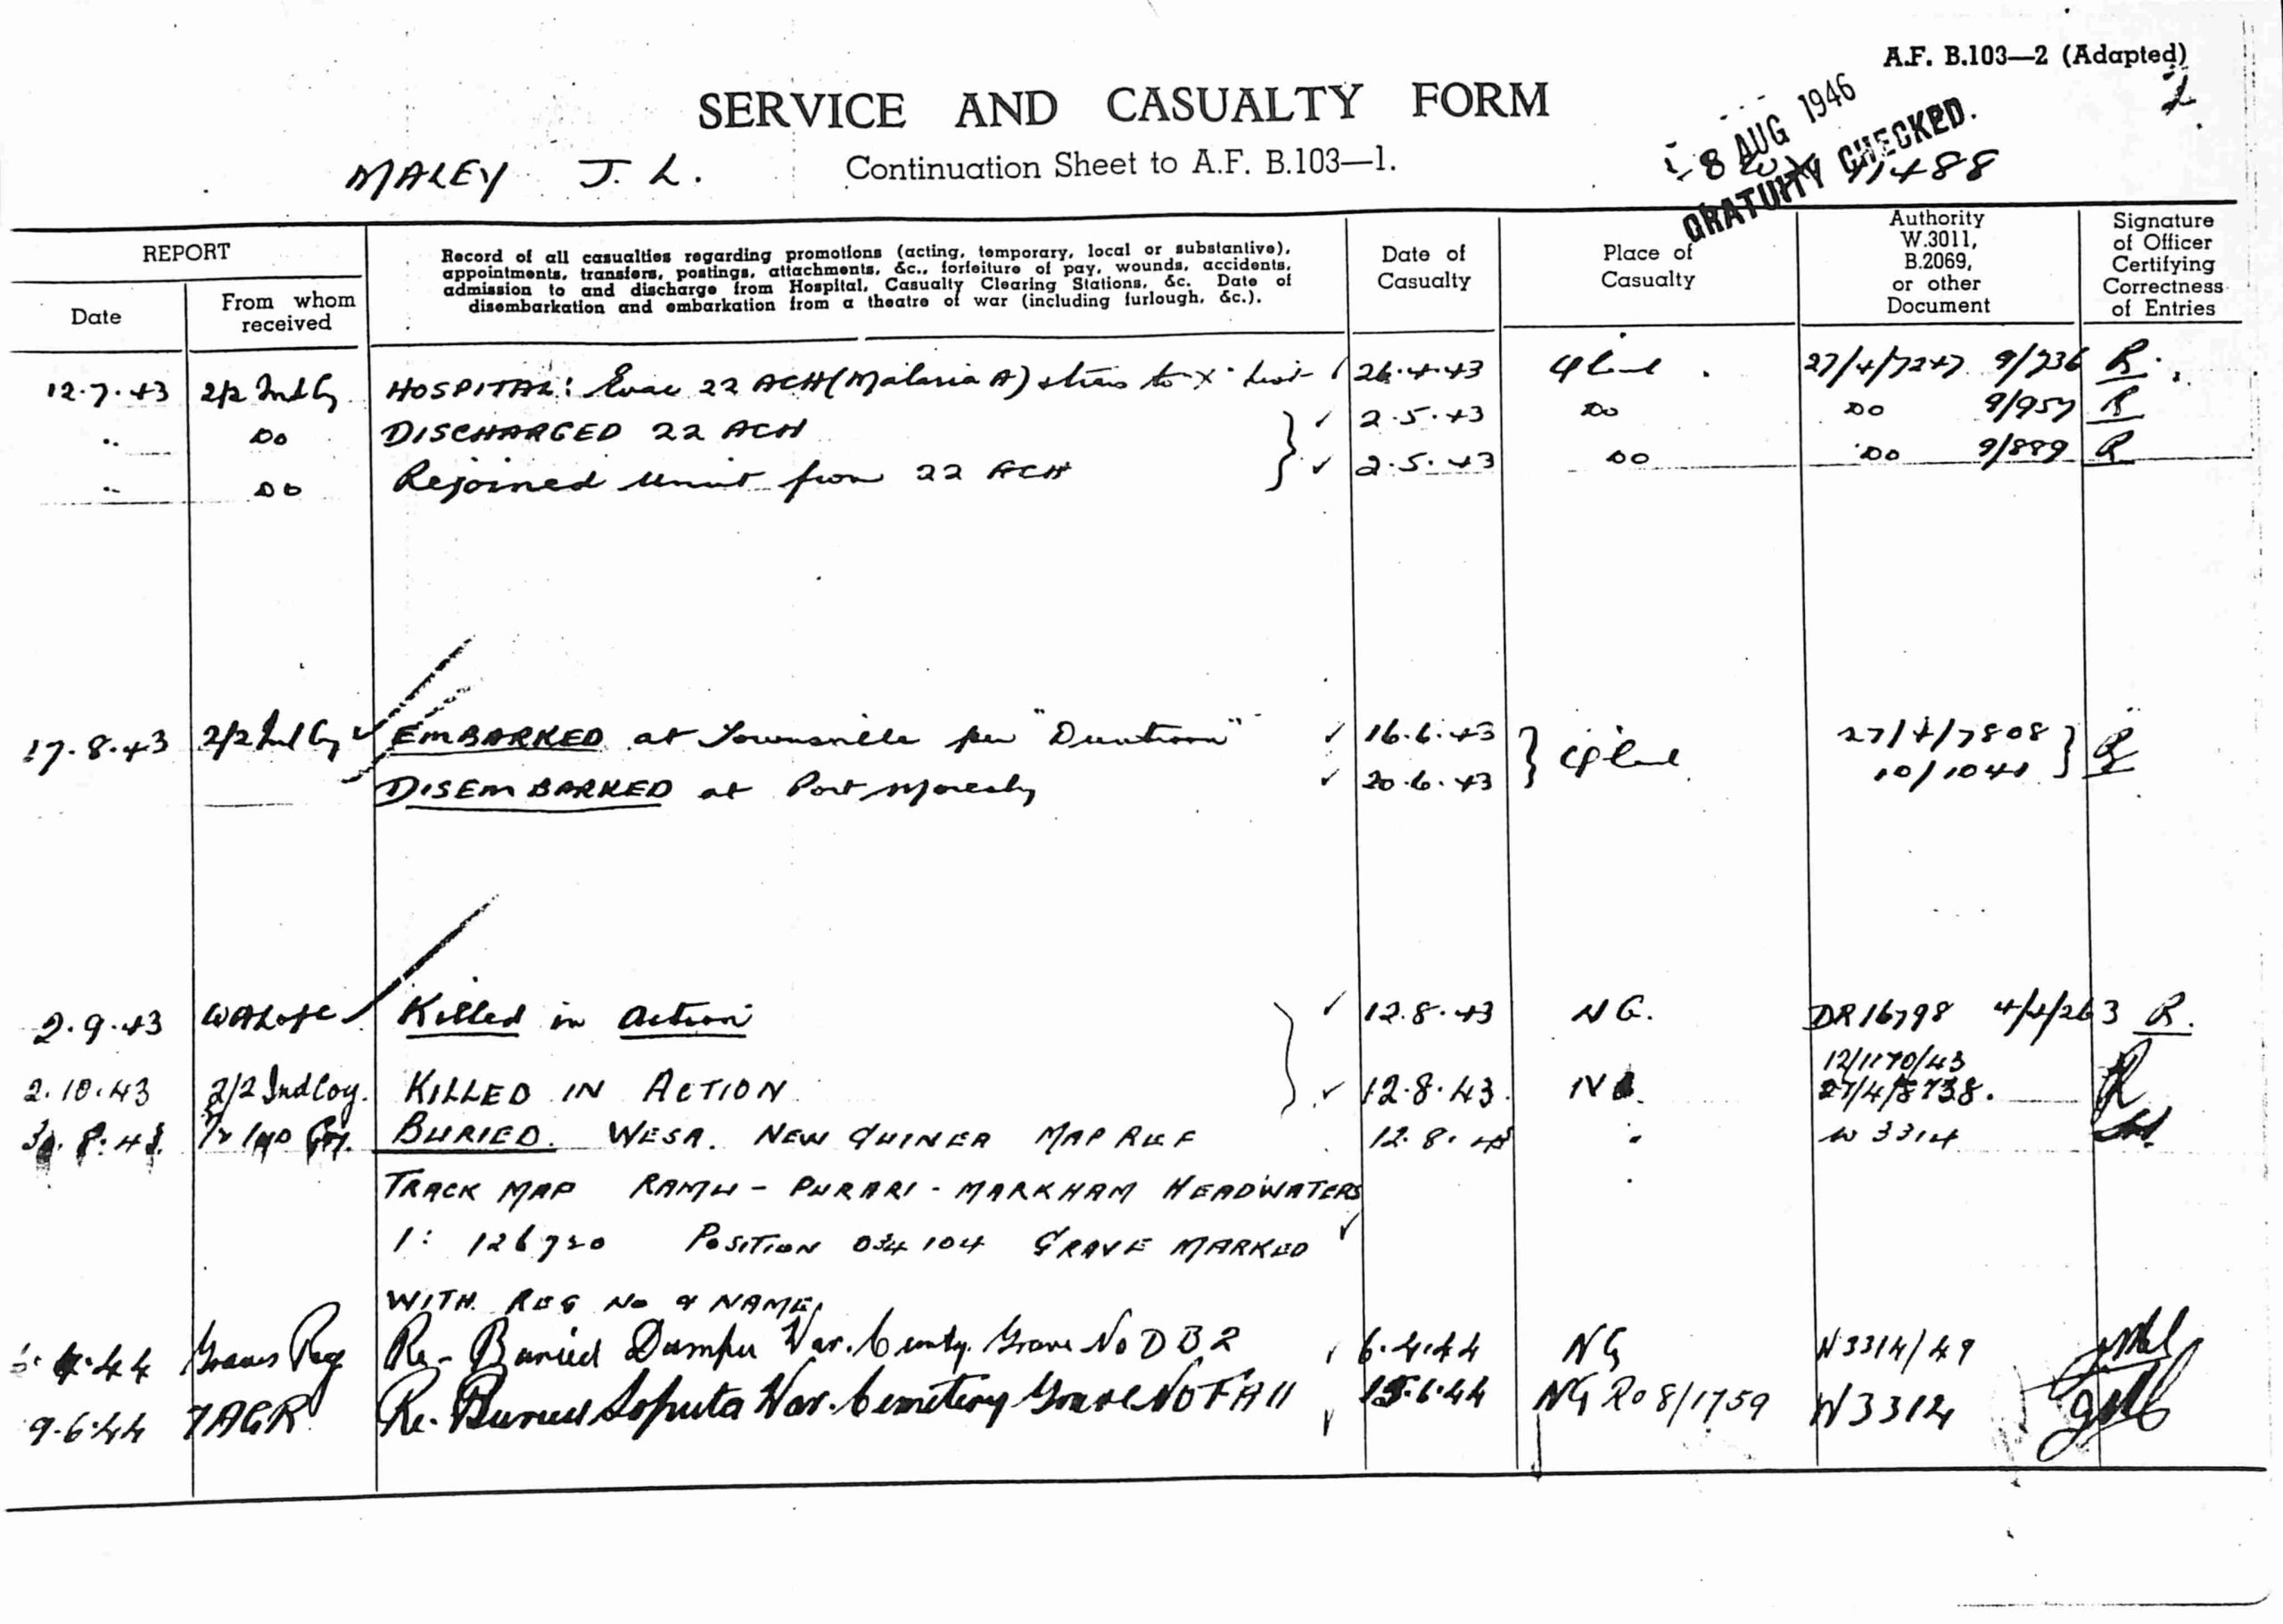 A.F. B.103—2 (Adapted)
2
SERVICE AND CASUALTY FORM
8 AUG 1946
GRATUITY CHECKED.
MALEY J. L.
Continuation Sheet to A.F. B.103—1.
REPORT
Date
From whom received
Record of all casualties regarding promotions (acting, temporary, local or substantive),
appointments, transfers, postings, attachments, &c., forfeiture of pay, wounds, accidents,
admission to and discharge from Hospital, Casualty Clearing Stations, &c. Date of
disembarkation and embarkation from a theatre of war (including furlough, &c.).
Date of Casualty
Place of Casualty
Authority W.3011, B.2069, or other Document
Signature of Officer Certifying Correctness of Entries
12.7.43 2/2 Ind Cy HOSPITAL: Evac 22 ACH (Malaria A) to X list 26.4.43 27/4/7247 9/736 R.
" DO DISCHARGED 22 ACH 2.5.43 DO DO 9/957 R
" DO Rejoined unit from 22 ACH 2.5.43 DO DO 9/889 R
17.8.43 2/2 Ind Cy EMBARKED at Townsville per "Duntroon" 16.6.43 27/4/7808 R
DISEMBARKED at Port Moresby 20.6.43 10/1041
2.9.43 Killed in action 12.8.43 NG. DR16798 4/4/263 R.
12/1170/43
2.10.43 2/2 Ind Coy. KILLED IN ACTION 12.8.43. NG. 27/4/8738. R
BURIED. WESA. NEW GUINEA MAP REF 12.8.43 " W 3314
TRACK MAP RAMU - PURARI - MARKHAM HEADWATERS
1: 126720 POSITION 034104 GRAVE MARKED
WITH REG No & NAME.
4.44 Graves Reg Re-Buried Dumpu War. Cemty. Grave No D B 2 6.4.44 NG W3314/49
9.6.44 Re-Buried Soputa War. Cemetery Grave No F A 11 15.6.44 NG RO 8/1759 W3314